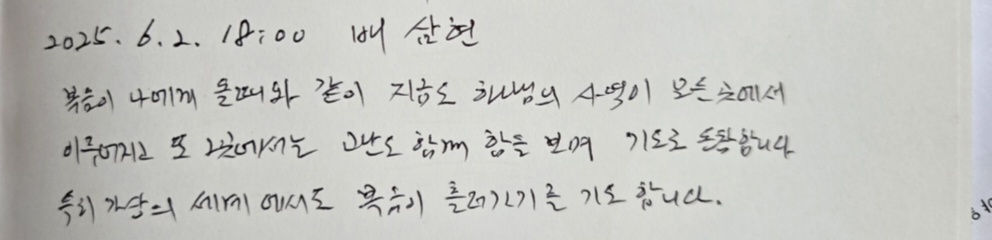 2025. 6. 2. 18:00 배 삼현
복음이 나에게 올때와 같이 지금도 하나님의 사역이 모든곳에서
이루어지고 또 그곳에서는 고난도 함께 함을 보며 기도로 동참합니다
특히 가상의 세계 에서도 복음이 흘러가기를 기도 합니다.